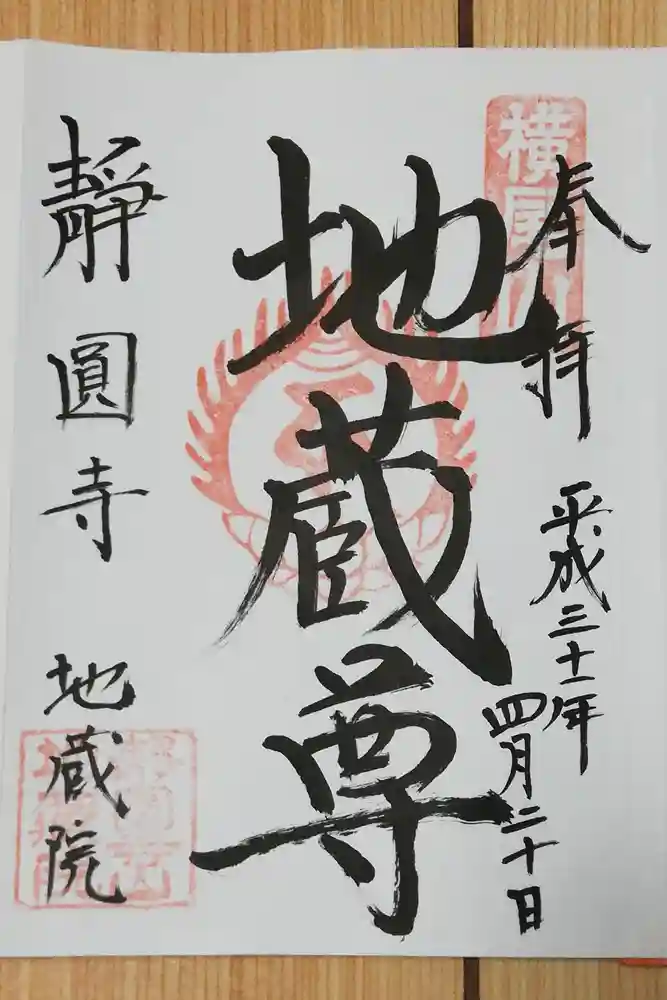 奉拝
平成三十一年
四月二十日
地蔵尊
靜圓寺
地蔵院